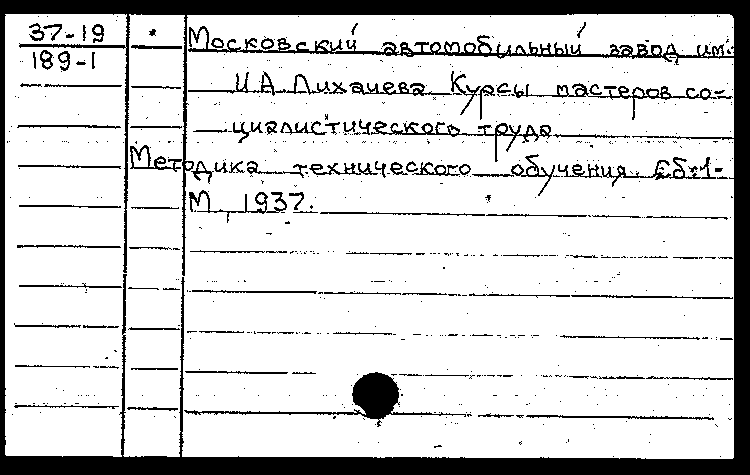 37-19 * Московский автомобильный завод им.
189-1 И А Лихачева Курсы мастеров со-
циалистического труда
Методика технического обучения. Сб. 1-
М., 1937.